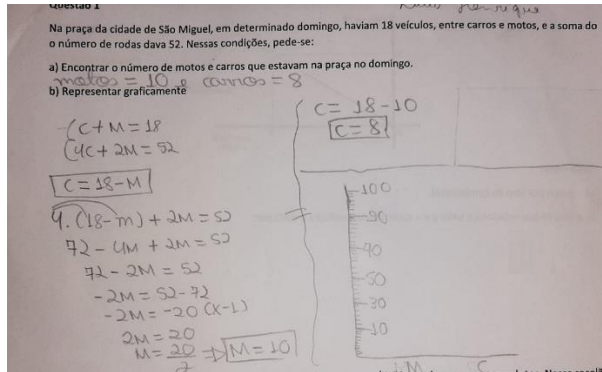 Questão 1
Henrique
Na praça da cidade de São Miguel, em determinado domingo, haviam 18 veículos, entre carros e motos, e a soma do
o número de rodas dava 52. Nessas condições, pede-se:
a) Encontrar o número de motos e carros que estavam na praça no domingo.
motos = 10 e carros = 8
b) Representar graficamente
C + M = 18
4C + 2M = 52
C = 18 - M
4.(18 - m) + 2M = 52
72 - 4M + 2M = 52
72 - 2M = 52
-2M = 52 - 72
-2M = -20 (x-1)
2M = 20
M = 20 => M = 10
2
C = 18 - 10
C = 8
100
90
40
50
30
10
M C